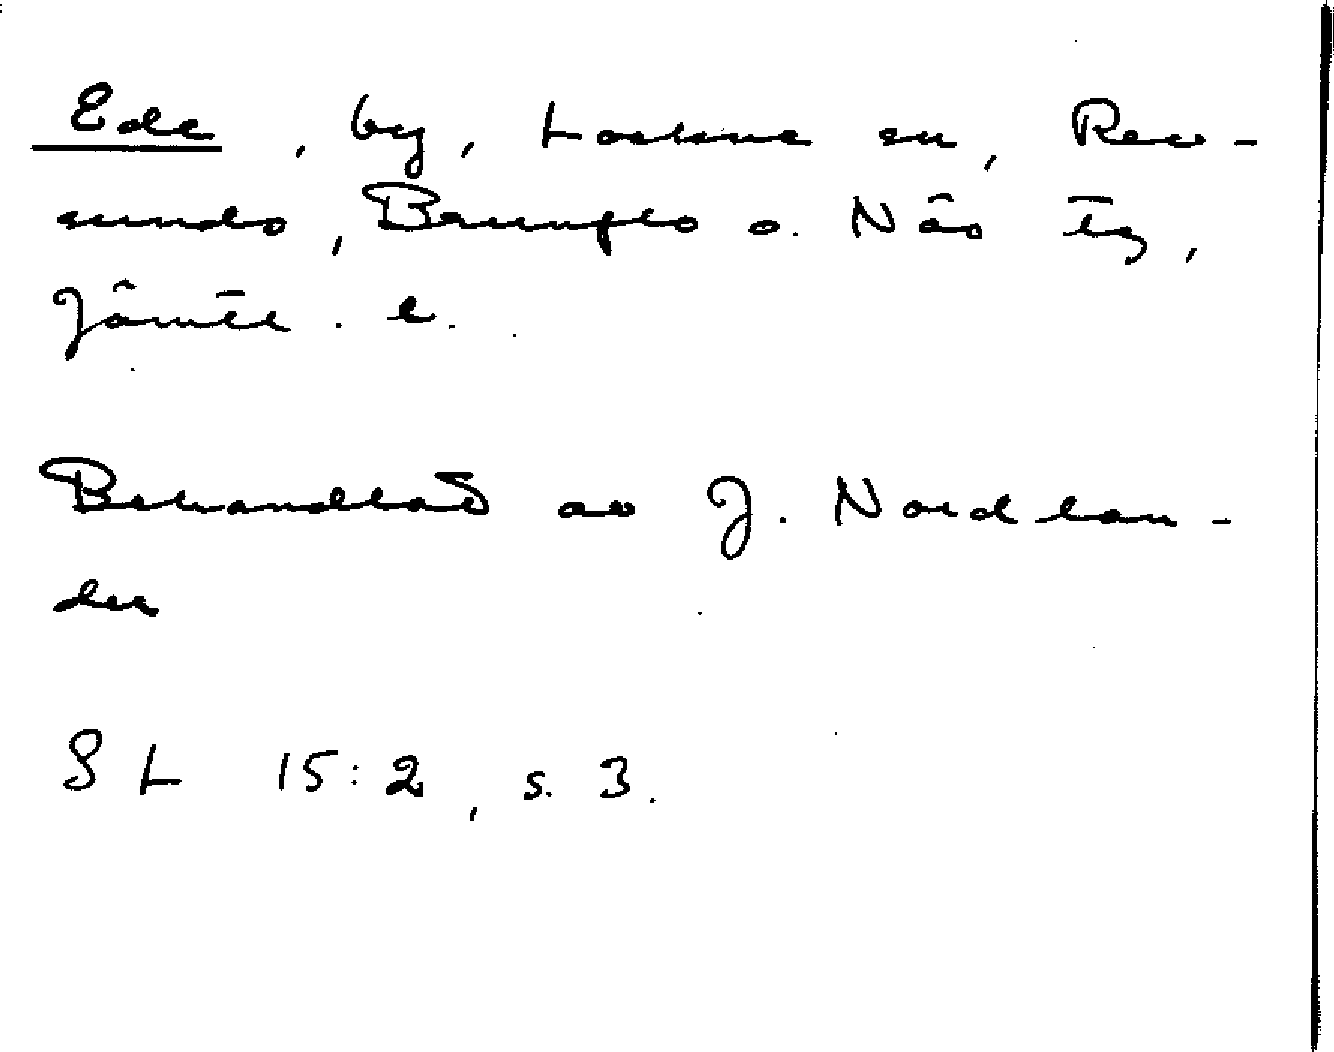 Ede, by, Lockne sn, Rev-
sunds, Brunflo o. Näs tg,
Jämtl. l.
Behandlat av J. Nordlan-
der
SL 15:2, s. 3.